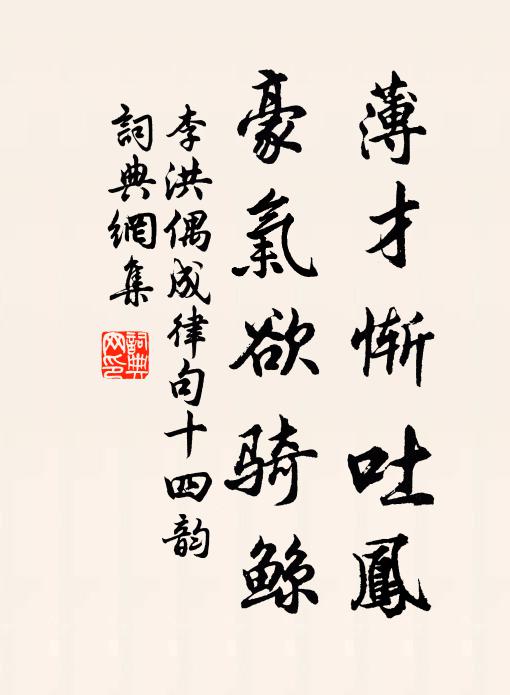 薄才慚吐鳳
豪氣欲骑鲸
李洪偶成律句十四韵
詞典網集
詞典網印